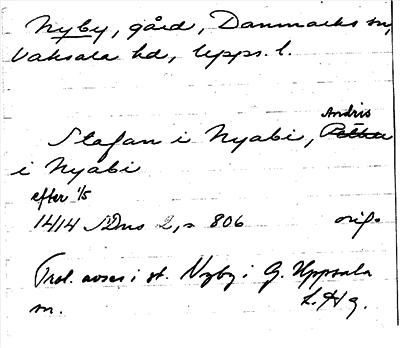 Nyby, gård, Danmarks sn,
Vaksala hd, Upps. l.
Stafan i Nyabi, Andris
i Nyabi
efter 1/5
1414 SDns 2, s 806 orig.
Trol. avses i st. Nyby i G. Uppsala
sn. L. Hg.